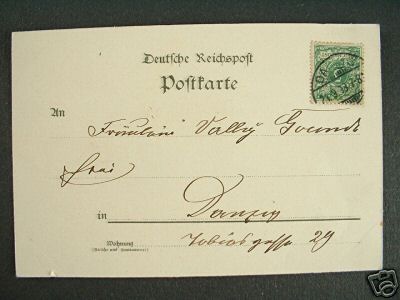 Deutsche Reichspost
Postkarte
An
Fräulein Vally
frei
in Danzig
Wohnung
(Straße und Hausnummer)
Tobiasgasse 29